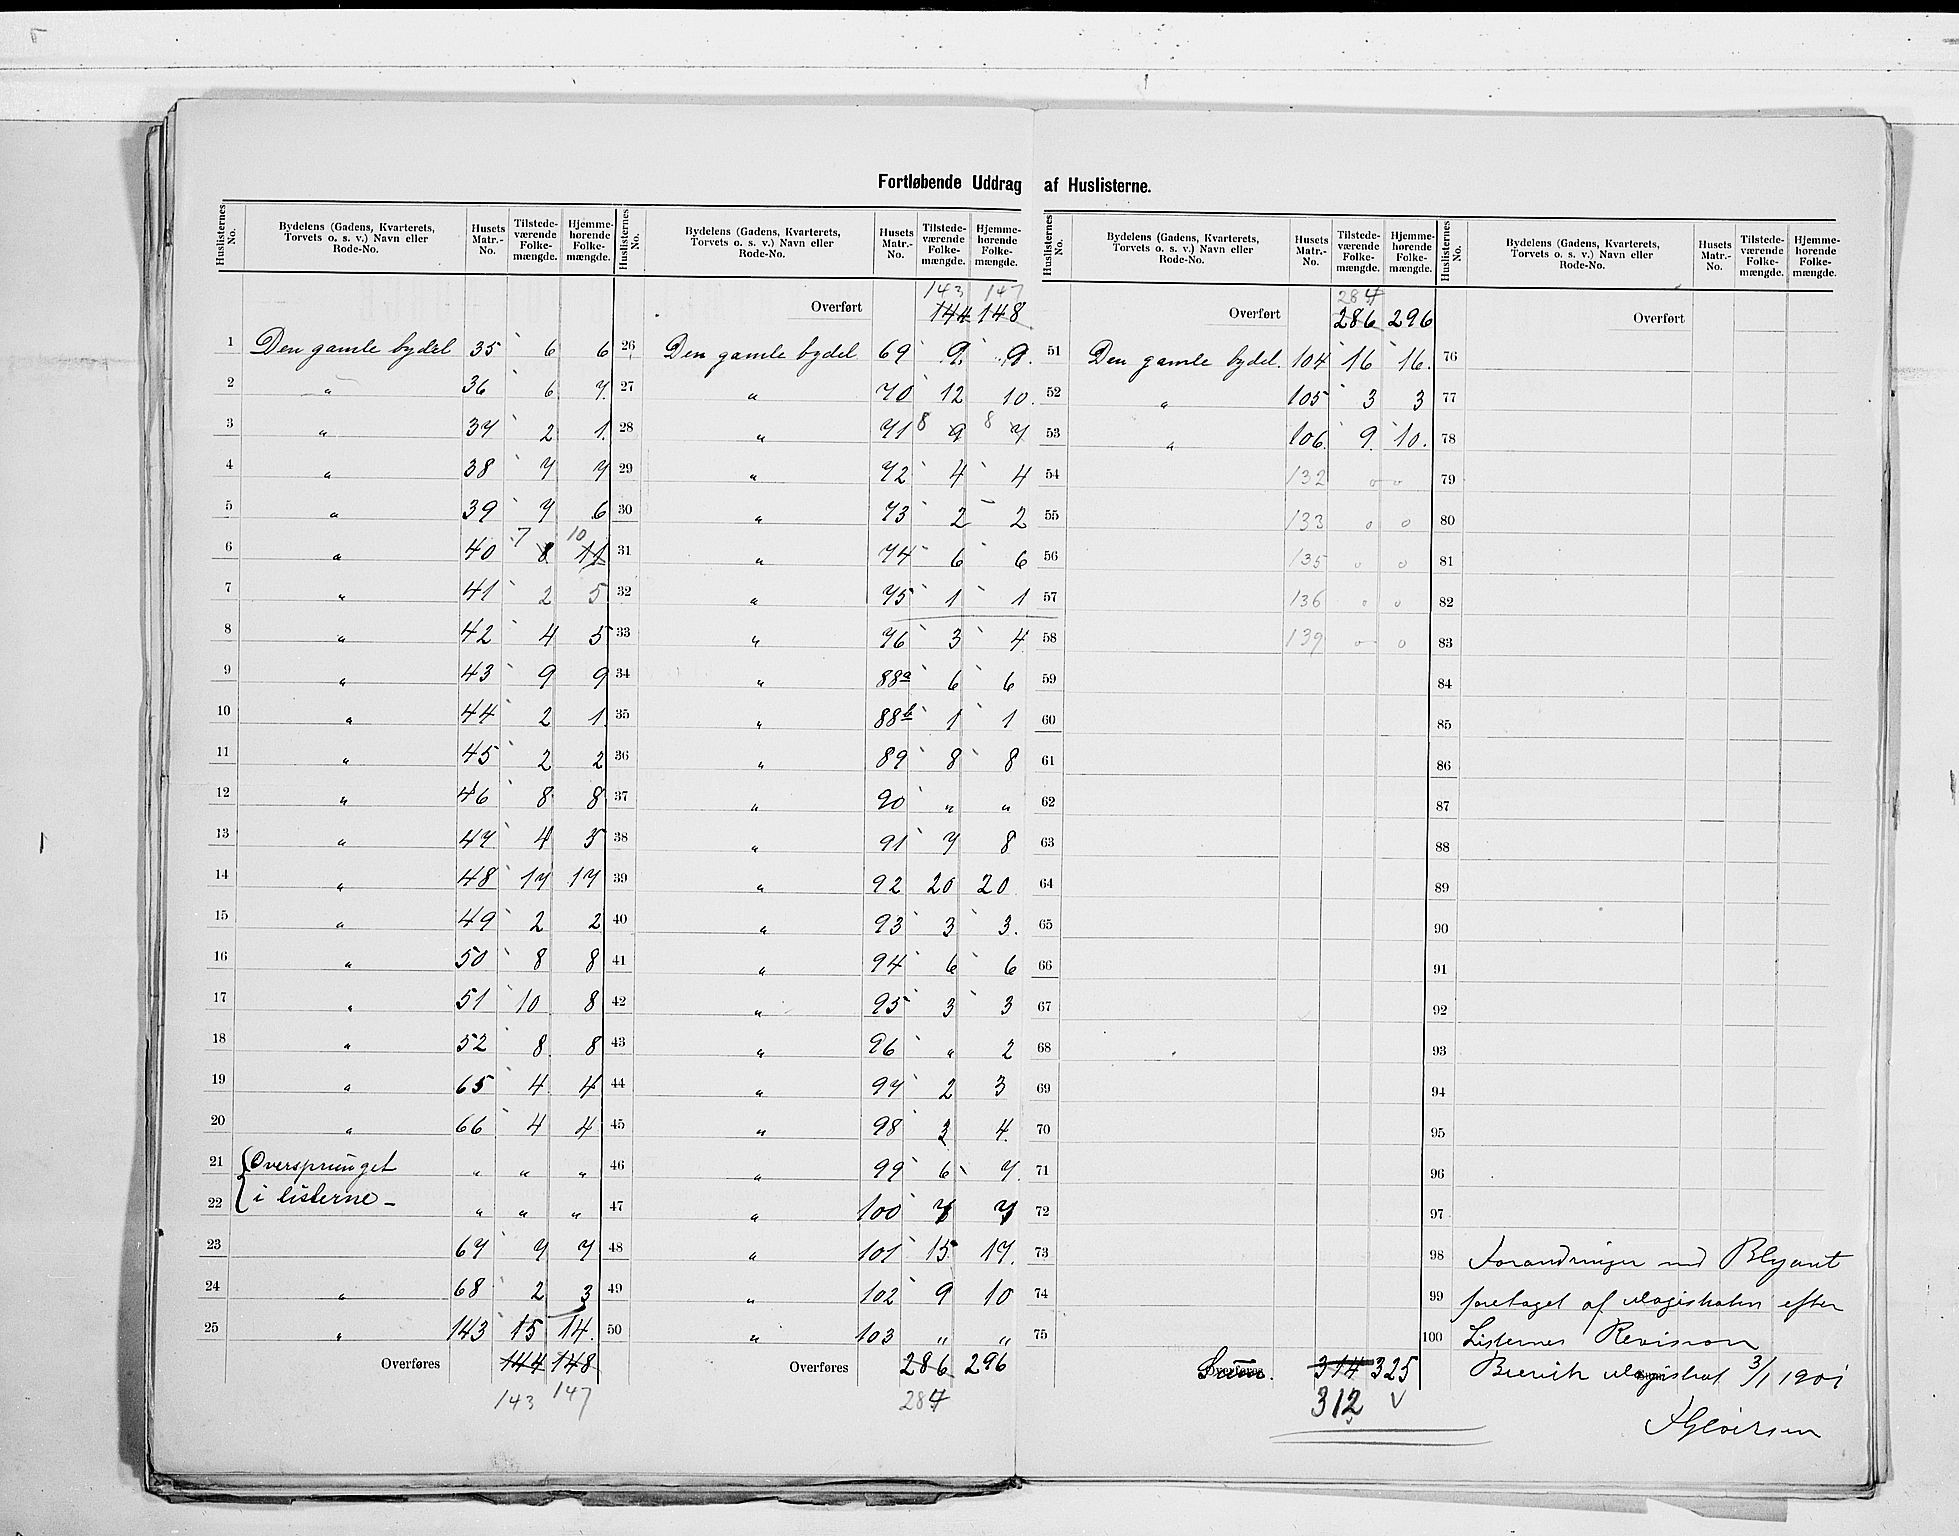 Fortløbende Uddrag af Huslisterne.
Huslisternes No. | Bydelens (Gadens, Kvarterets, Torvets o. s. v.) Navn eller Rode-No. | Husets Matr.-No. | Tilstede-værende Folke-mængde. | Hjemme-hørende Folke-mængde.
1 Den gamle bydel 35 6 6
2 " 36 6 7
3 " 37 2 1
4 " 38 7 7
5 " 39 7 6
6 " 40 7 8 10 11
7 " 41 2 5
8 " 42 4 5
9 " 43 9 9
10 " 44 2 1
11 " 45 2 2
12 " 46 8 8
13 " 47 4 5
14 " 48 17 17
15 " 49 2 2
16 " 50 8 8
17 " 51 10 8
18 " 52 8 8
19 " 65 4 4
20 " 66 4 4
21 Oversprunget " " "
22 i listerne - " " "
23 67 7 7
24 " 68 2 3
25 " 143 15 14.
Overføres 144 148
143 147
Huslisternes No. | Bydelens (Gadens, Kvarterets, Torvets o. s. v.) Navn eller Rode-No. | Husets Matr.-No. | Tilstede-værende Folke-mængde. | Hjemme-hørende Folke-mængde.
143 147
Overført 144 148
26 Den gamle bydel 69 9 9.
27 " 70 12 10.
28 " 71 8 9 8 7
29 " 72 4 4
30 " 73 2 2
31 " 74 6 6
32 " 75 1 1
33 " 76 3 4
34 " 88a 6 6
35 " 88b 1 1
36 " 89 8 8
37 " 90 " "
38 " 91 7 8
39 " 92 20 20
40 " 93 3 3.
41 " 94 6 6
42 " 95 3 3
43 " 96 " 2
44 " 97 2 3
45 " 98 3 4.
46 " 99 6 7.
47 " 100 7 7
48 " 101 15 17.
49 " 102 9 10
50 " 103 " "
Overføres 286 296
284
Huslisternes No. | Bydelens (Gadens, Kvarterets, Torvets o. s. v.) Navn eller Rode-No. | Husets Matr.-No. | Tilstede-værende Folke-mængde. | Hjemme-hørende Folke-mængde.
284
Overført 286 296
51 Den gamle bydel. 104 16 16.
52 " 105 3 3
53 " 106. 9. 10.
54 132 0 0
55 133 0 0
56 135 0 0
57 136 0 0
58 139 0 0
59
60
61
62
63
64
65
66
67
68
69
70
71
72
73
74
75
Overføres Sum. 314 325
312 v
Huslisternes No. | Bydelens (Gadens, Kvarterets, Torvets o. s. v.) Navn eller Rode-No. | Husets Matr.-No. | Tilstede-værende Folke-mængde. | Hjemme-hørende Folke-mængde.
Overført
76
77
78
79
80
81
82
83
84
85
86
87
88
89
90
91
92
93
94
95
96
97
98 Forandringer med Blyant
99 foretaget af Magistraten efter
100 Listernes Revision
Brevik Magistrat 3/1 1901